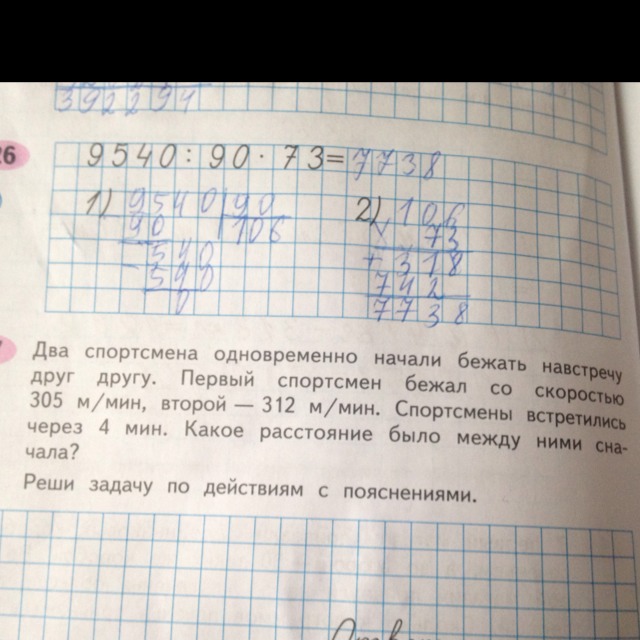 392291
26
9540:90·73=7738
1) 9540 90
90 106
540
540
0
2) 106
× 73
+ 318
742
7738
Два спортсмена одновременно начали бежать навстречу
друг другу. Первый спортсмен бежал со скоростью
305 м/мин, второй — 312 м/мин. Спортсмены встретились
через 4 мин. Какое расстояние было между ними сна-
чала?
Реши задачу по действиям с пояснениями.